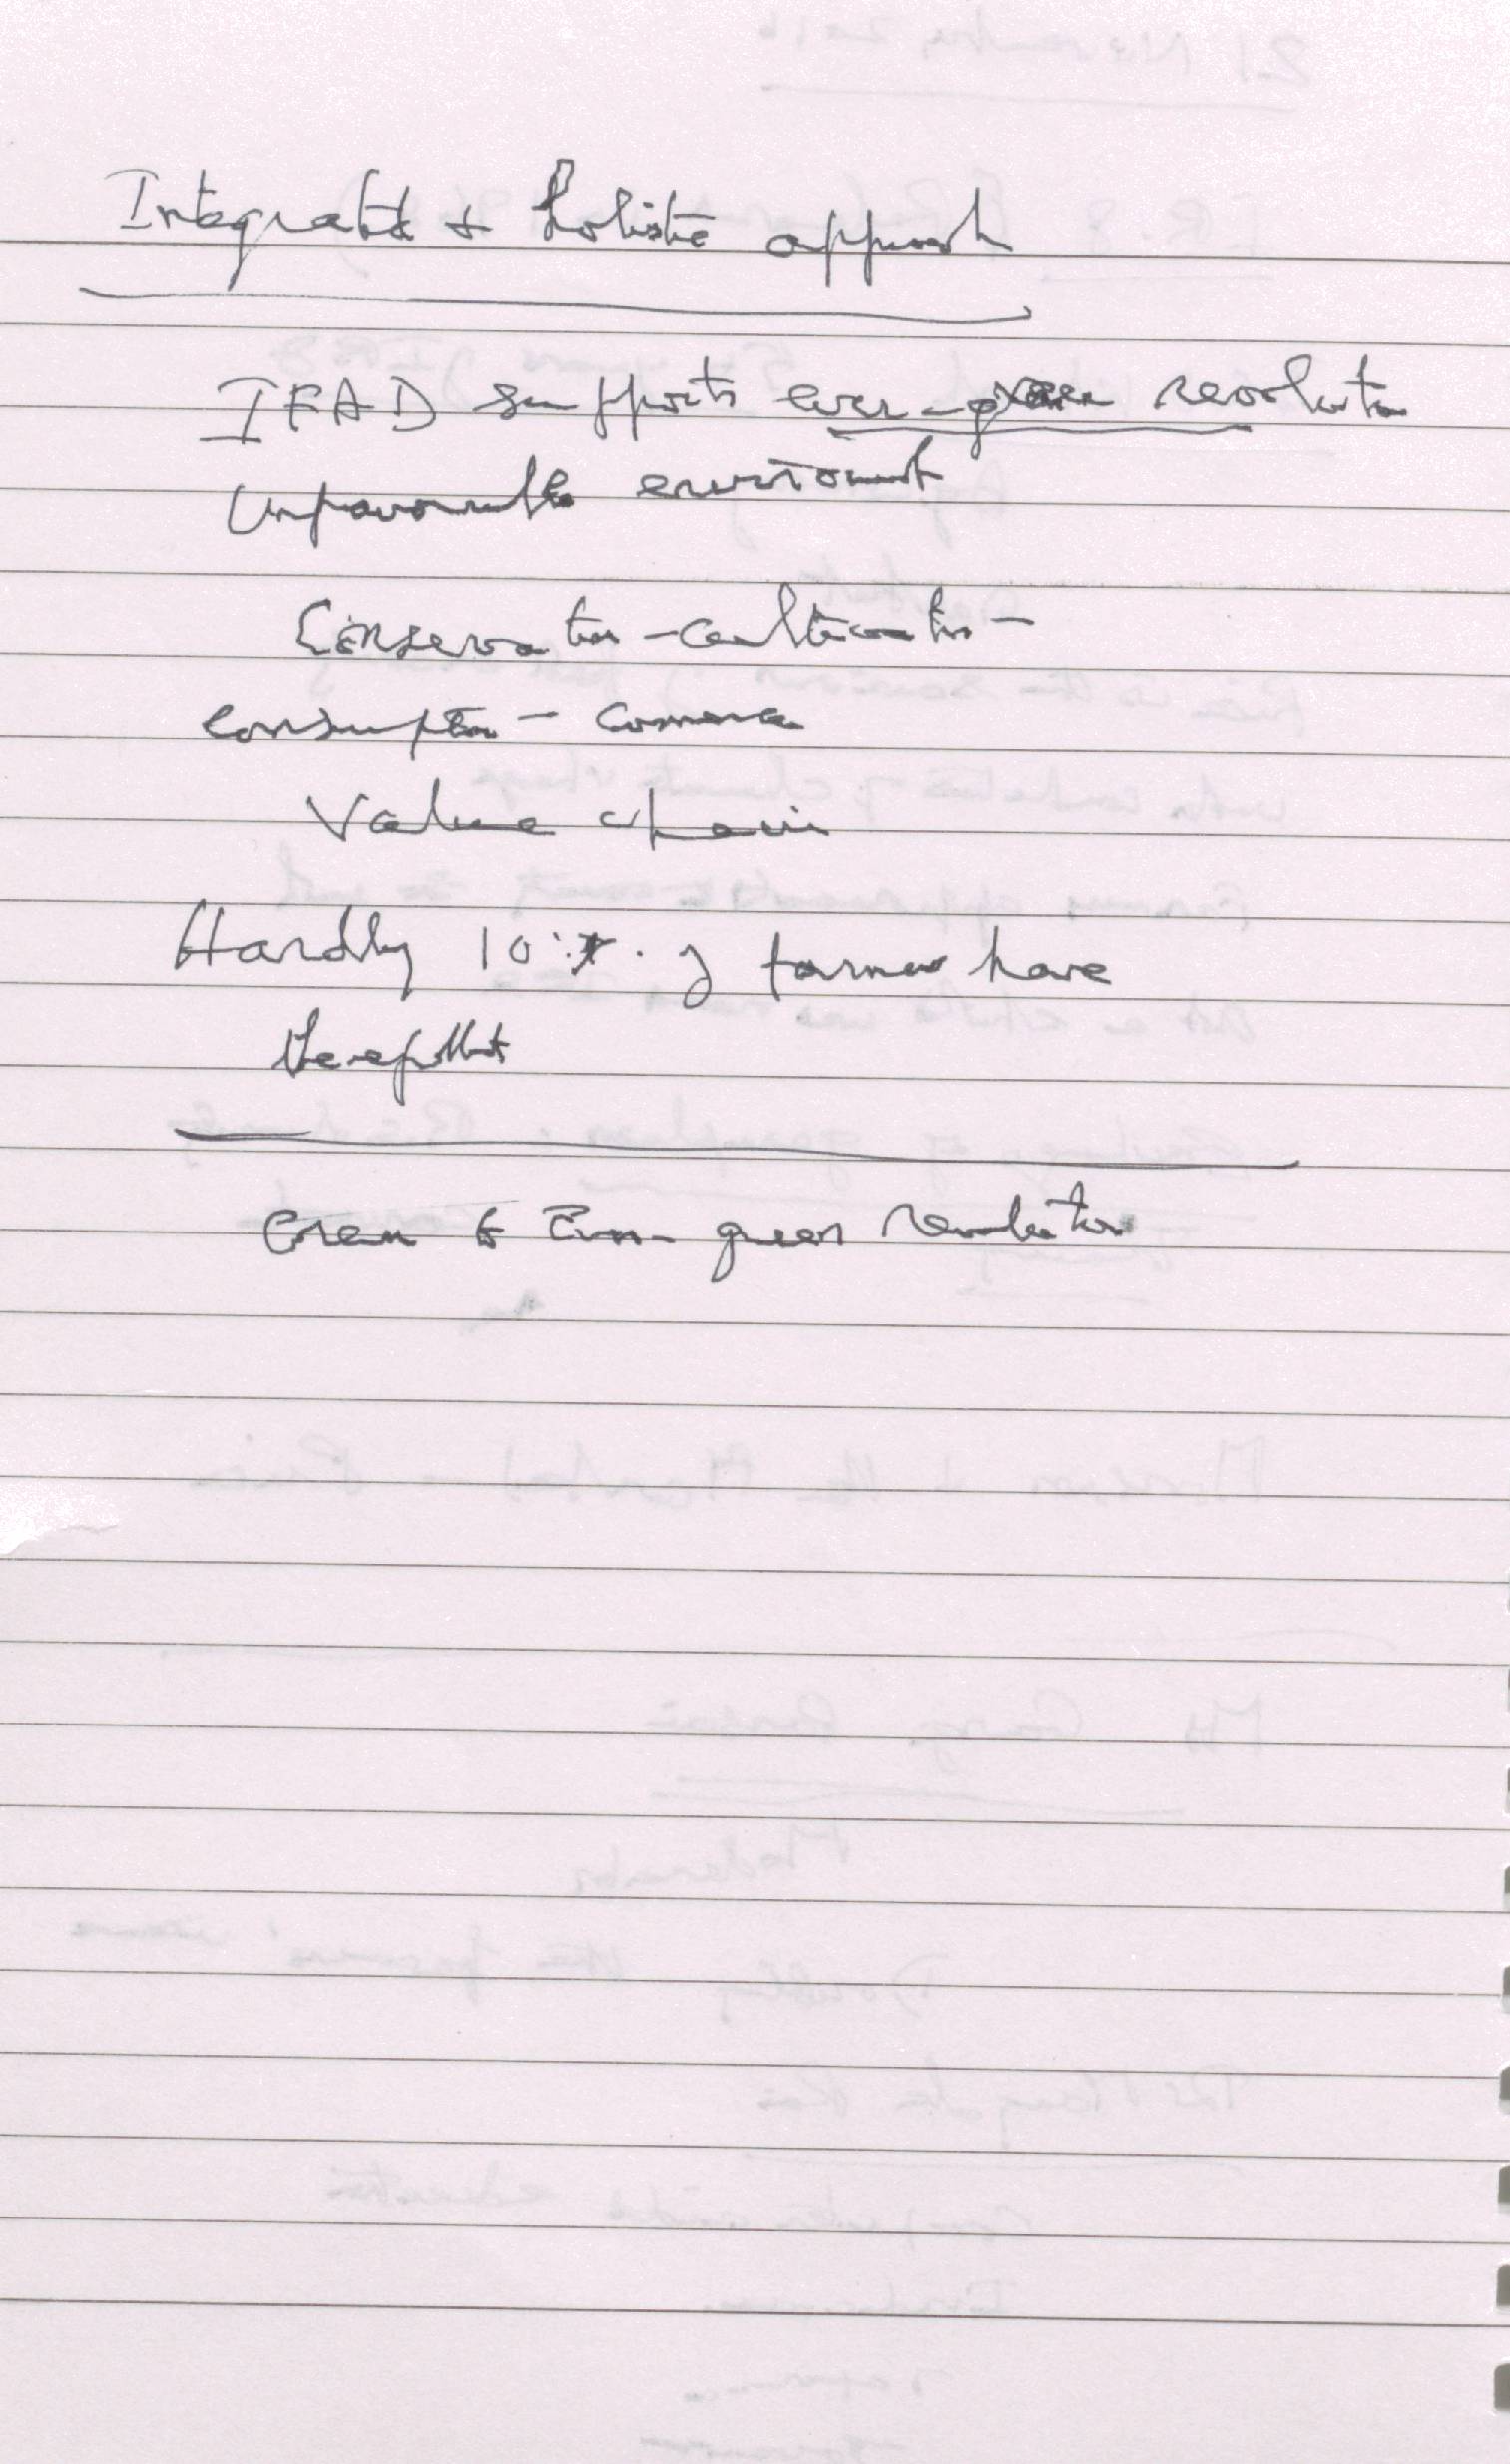 Integrated + holistic approach
IFAD supports ever-green revolution
Unfavourable environment
Conservation - cultivation -
consumption - commerce
Value chain
Hardly 10% of farmers have
Green to Ever-green revolution